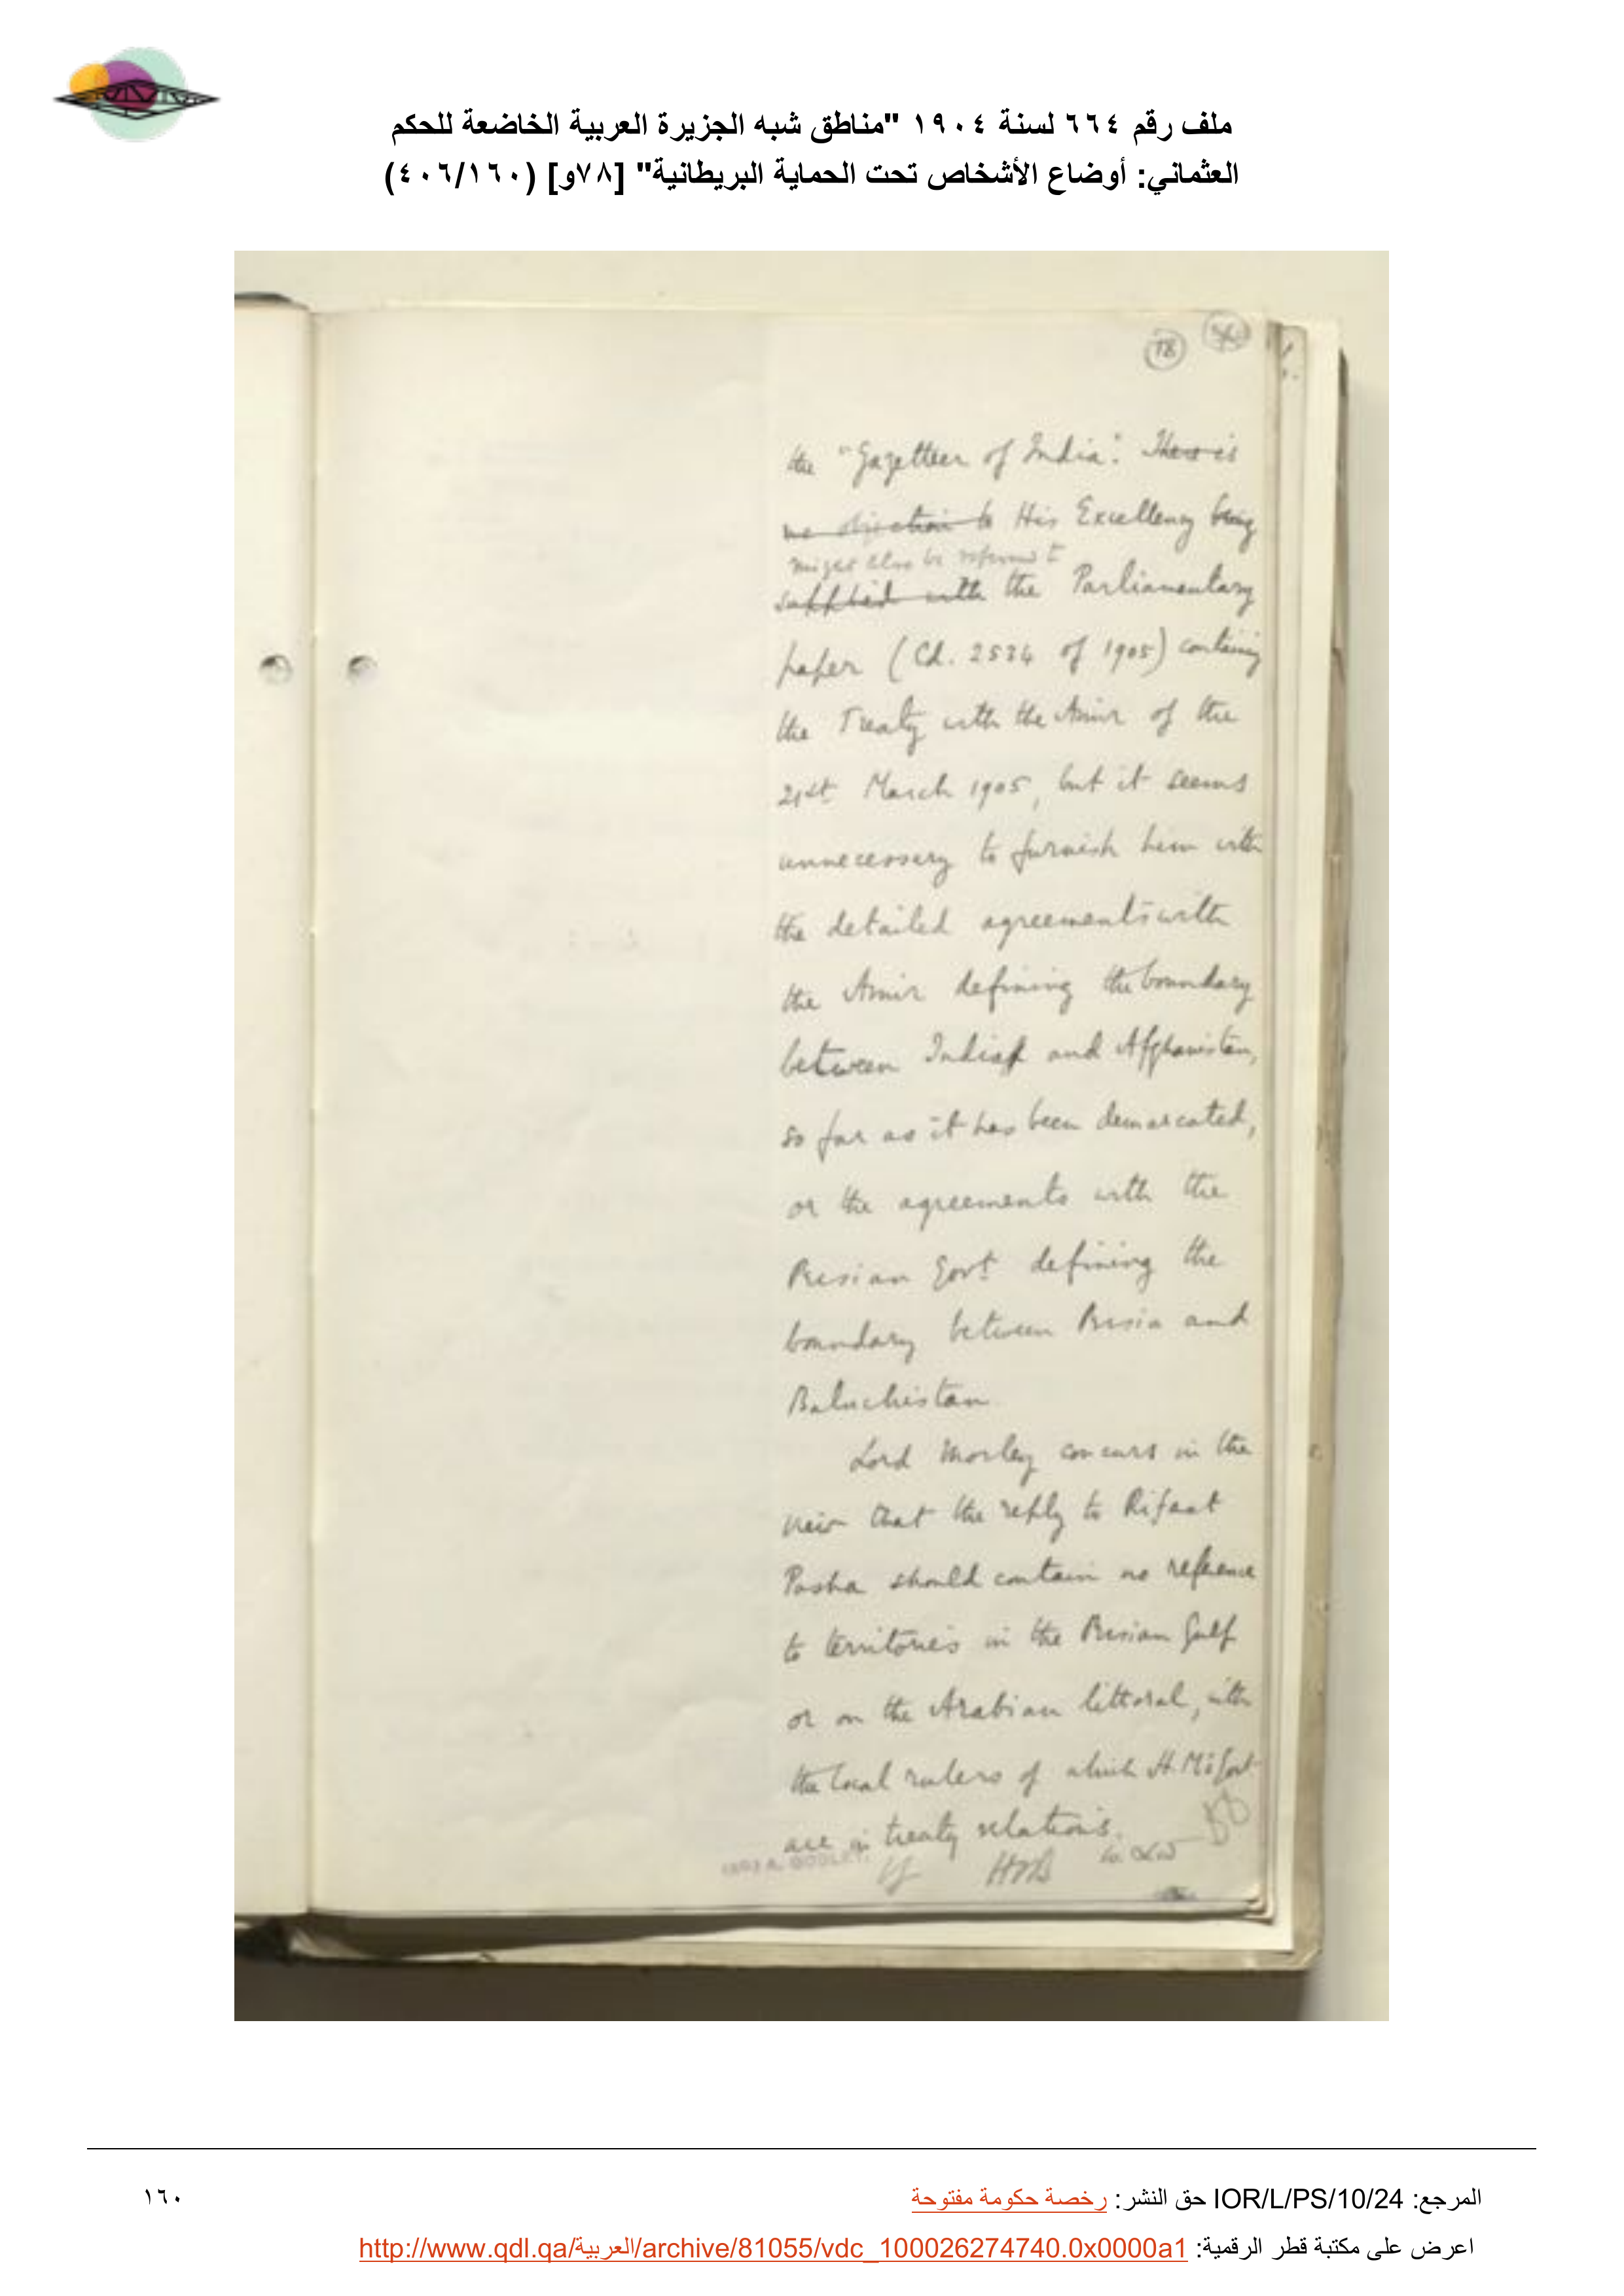 ملف رقم ٦٦٤ لسنة ١٩٠٤ "مناطق شبه الجزيرة العربية الخاضعة للحكم
العثماني: أوضاع الأشخاص تحت الحماية البريطانية" [٧٨و] (٤٠٦/١٦٠)
78
the "Gazetteer of India". There is
no objection to His Excellency being
might also be referred to
supplied with the Parliamentary
paper (Cd. 2534 of 1905) containing
the Treaty with the Amir of the
21st March 1905, but it seems
unnecessary to furnish him with
the detailed agreements with
the Amir defining the boundary
between India and Afghanistan,
so far as it has been demarcated,
or the agreements with the
Persian Govt. defining the
boundary between Persia and
Baluchistan
Lord Morley concurs in the
view that the reply to Rifaat
Pasha should contain no reference
to territories in the Persian Gulf
or on the Arabian littoral, with
the local rulers of which H.M's Govt
are in treaty relations.
A. GODLEY.
HVB
المرجع: IOR/L/PS/10/24 حق النشر: رخصة حكومة مفتوحة
١٦٠
اعرض على مكتبة قطر الرقمية: http://www.qdl.qa/العربية/archive/81055/vdc_100026274740.0x0000a1